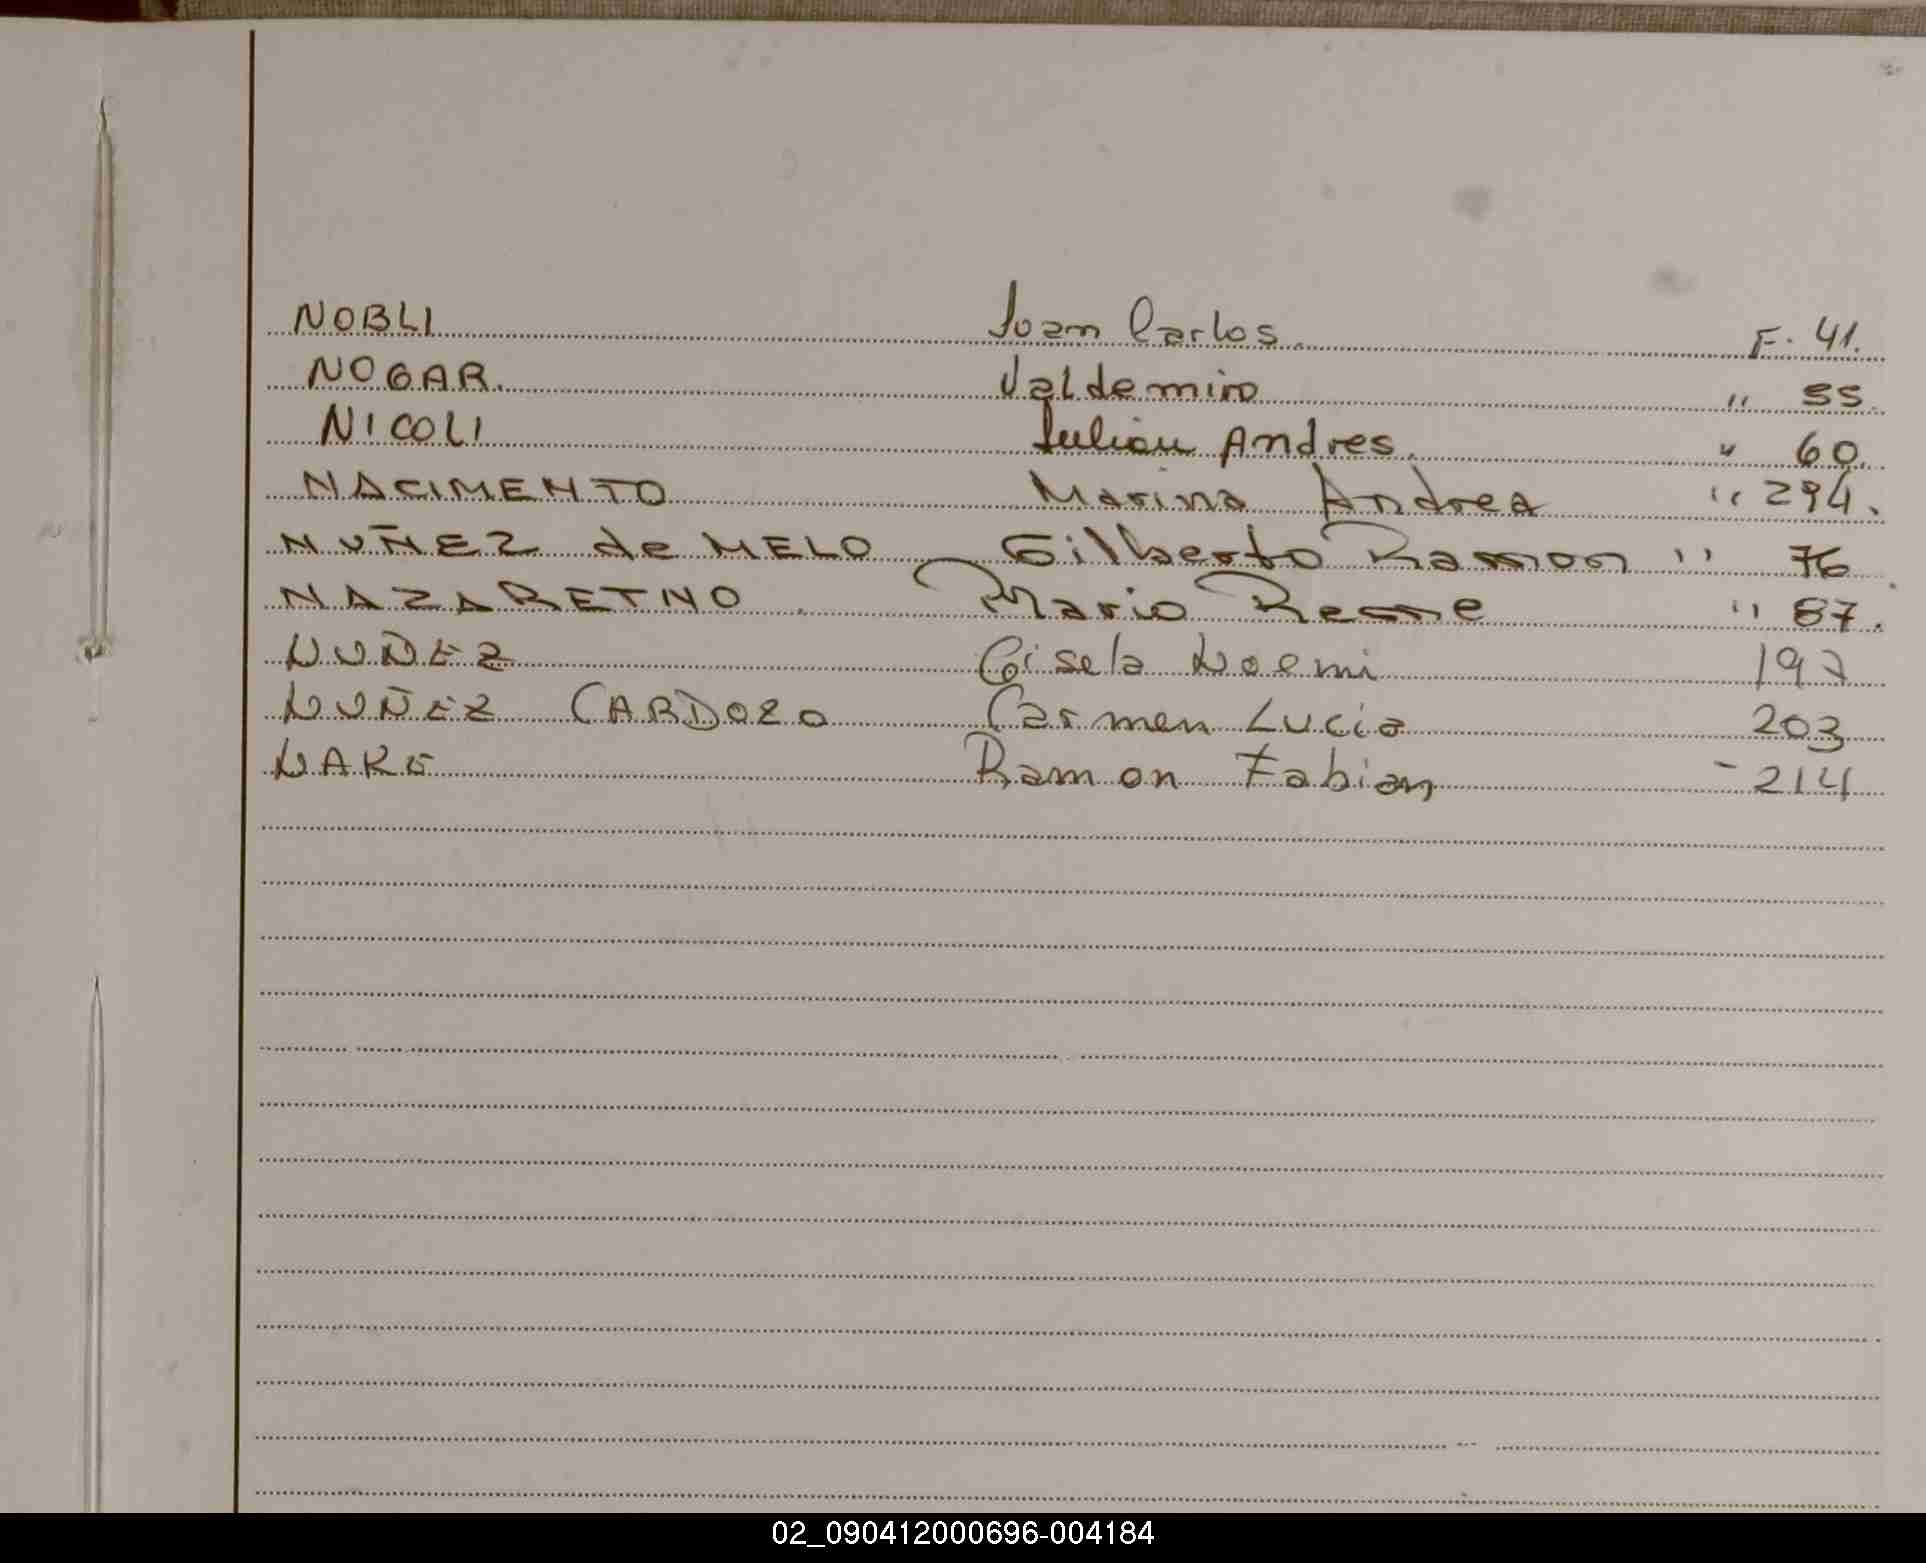 NOBLI Joan Carlos. F. 41.
NOGAR. Valdemiro " 55.
NICOLI Julian Andres. " 60.
NACIMENTO Marina Andrea " 294.
NUÑEZ de MELO Gilberto Ramon " 76
NAZARETNO. Mario Rene " 87.
NUÑEZ Gisela Noemi 197
NUÑEZ CARDOZO Carmen Lucia 203
NAKE Ramon Fabian - 214
02_090412000696-004184